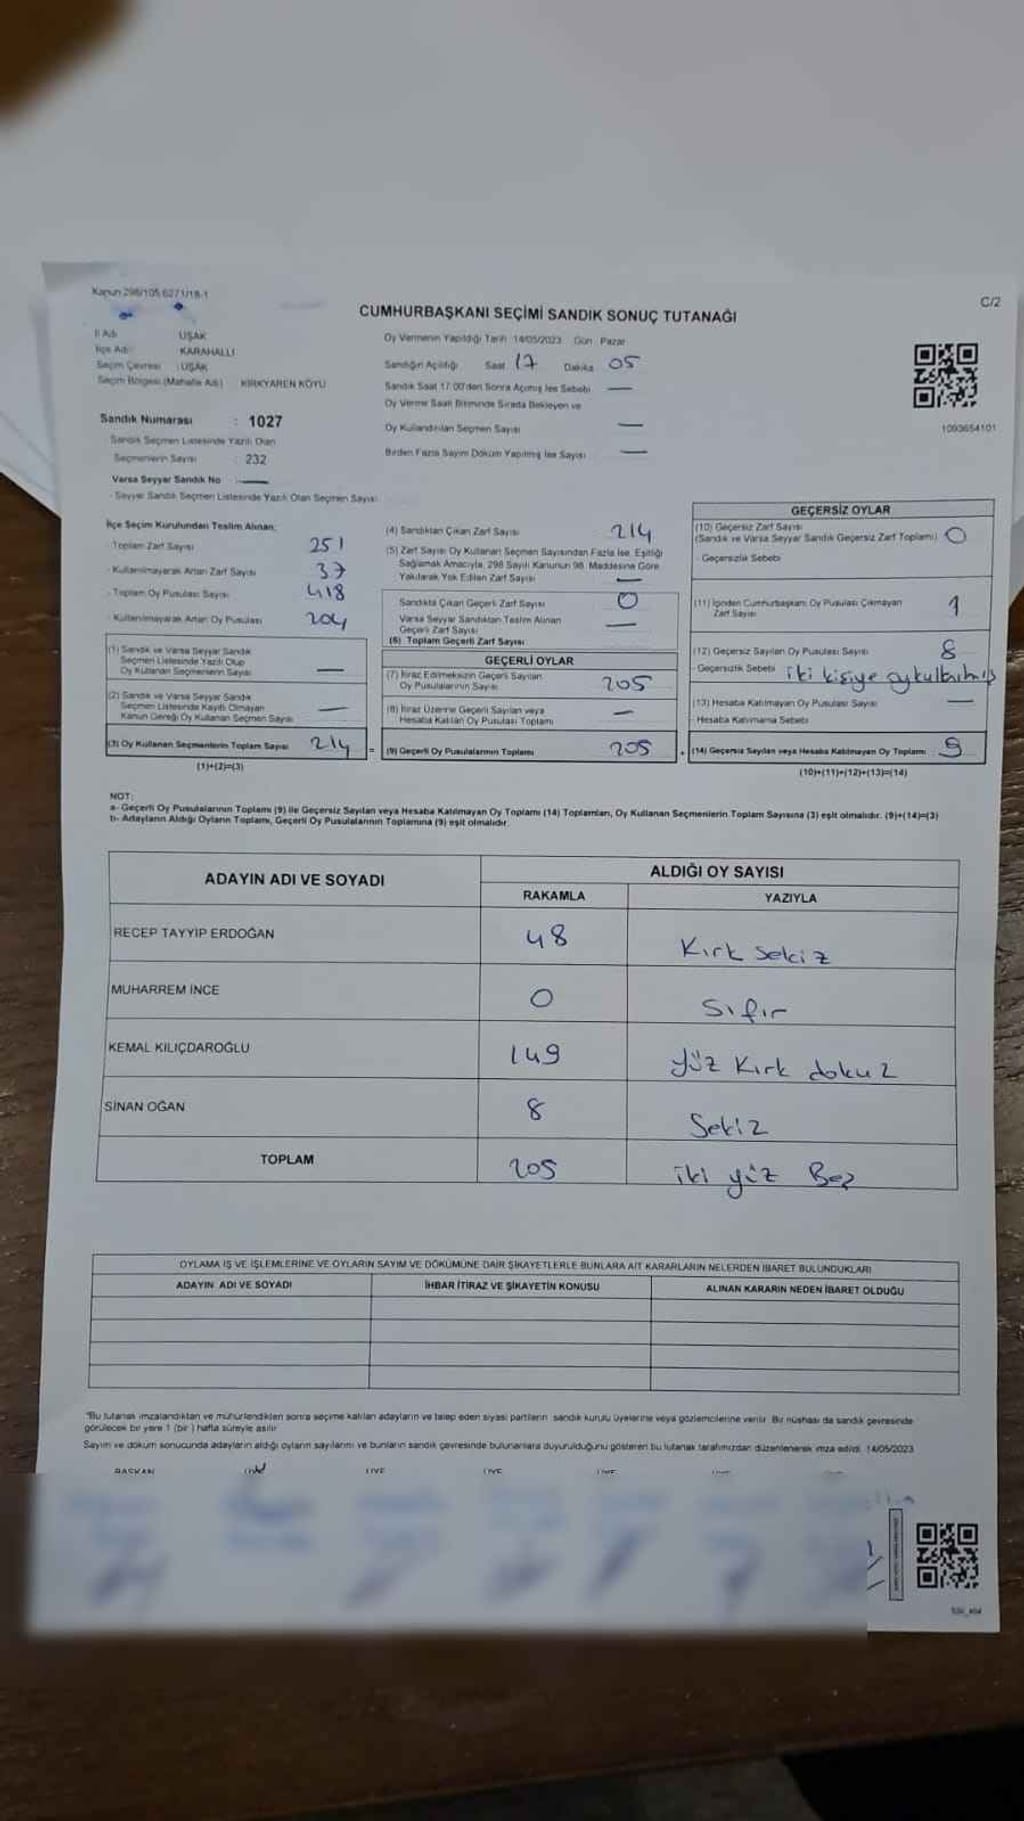 Kanun 298/105,6271/18-1
C/2
CUMHURBAŞKANI SEÇİMİ SANDIK SONUÇ TUTANAĞI
İl Adı UŞAK
İlçe Adı KARAHALLI
Seçim Çevresi : UŞAK
Seçim Bölgesi (Mahalle Adı) KIRKYAREN KÖYÜ
Sandık Numarası : 1027
Sandık Seçmen Listesinde Yazılı Olan
Seçmenlerin Sayısı : 232
Varsa Seyyar Sandık No —
- Seyyar Sandık Seçmen Listesinde Yazılı Olan Seçmen Sayısı
Oy Vermenin Yapıldığı Tarih 14/05/2023 Gün Pazar
Sandığın Açıldığı Saat 17 Dakika 05
Sandık Saat 17:00'den Sonra Açılmış İse Sebebi —
Oy Verme Saati Bitiminde Sırada Bekleyen ve
Oy Kullandırılan Seçmen Sayısı —
Birden Fazla Sayım Döküm Yapılmış İse Sayısı —
1093654101
İlçe Seçim Kurulundan Teslim Alınan;
- Toplam Zarf Sayısı 251
- Kullanılmayarak Artan Zarf Sayısı 37
- Toplam Oy Pusulası Sayısı 418
- Kullanılmayarak Artan Oy Pusulası 204
(1) Sandık ve Varsa Seyyar Sandık
Seçmen Listesinde Yazılı Olup
Oy Kullanan Seçmenlerin Sayısı —
(2) Sandık ve Varsa Seyyar Sandık
Seçmen Listesinde Kayıtlı Olmayan
Kanun Gereği Oy Kullanan Seçmen Sayısı —
(3) Oy Kullanan Seçmenlerin Toplam Sayısı 214 =
(1)+(2)=(3)
(4) Sandıktan Çıkan Zarf Sayısı 214
(5) Zarf Sayısı Oy Kullanan Seçmen Sayısından Fazla İse, Eşitliği
Sağlamak Amacıyla, 298 Sayılı Kanunun 98. Maddesine Göre
Yakılarak Yok Edilen Zarf Sayısı —
Sandıkta Çıkan Geçerli Zarf Sayısı 0
Varsa Seyyar Sandıktan Teslim Alınan
Geçerli Zarf Sayısı —
(6) Toplam Geçerli Zarf Sayısı
GEÇERLİ OYLAR
(7) İtiraz Edilmeksizin Geçerli Sayılan
Oy Pusulalarının Sayısı 205
(8) İtiraz Üzerine Geçerli Sayılan veya
Hesaba Katılan Oy Pusulası Toplamı —
(9) Geçerli Oy Pusulalarının Toplamı 205
GEÇERSİZ OYLAR
(10) Geçersiz Zarf Sayısı
(Sandık ve Varsa Seyyar Sandık Geçersiz Zarf Toplamı) 0
- Geçersizlik Sebebi
(11) İçinden Cumhurbaşkanı Oy Pusulası Çıkmayan
Zarf Sayısı 1
(12) Geçersiz Sayılan Oy Pusulası Sayısı 8
- Geçersizlik Sebebi iki kişiye
(13) Hesaba Katılmayan Oy Pusulası Sayısı —
Hesaba Katılmama Sebebi
(14) Geçersiz Sayılan veya Hesaba Katılmayan Oy Toplamı 9
(10)+(11)+(12)+(13)=(14)
NOT:
a- Geçerli Oy Pusulalarının Toplamı (9) ile Geçersiz Sayılan veya Hesaba Katılmayan Oy Toplamı (14) Toplamları, Oy Kullanan Seçmenlerin Toplam Sayısına (3) eşit olmalıdır. (9)+(14)=(3)
b- Adayların Aldığı Oyların Toplamı, Geçerli Oy Pusulalarının Toplamına (9) eşit olmalıdır.
ADAYIN ADI VE SOYADI ALDIĞI OY SAYISI
RAKAMLA YAZIYLA
RECEP TAYYİP ERDOĞAN 48 Kırk sekiz
MUHARREM İNCE 0 Sıfır
KEMAL KILIÇDAROĞLU 149 Yüz Kırk dokuz
SİNAN OĞAN 8 Sekiz
TOPLAM 205 iki yüz Beş
OYLAMA İŞ VE İŞLEMLERİNE VE OYLARIN SAYIM VE DÖKÜMÜNE DAİR ŞİKAYETLERLE BUNLARA AİT KARARLARIN NELERDEN İBARET BULUNDUKLARI
ADAYIN ADI VE SOYADI İHBAR İTİRAZ VE ŞİKAYETİN KONUSU ALINAN KARARIN NEDEN İBARET OLDUĞU
"Bu tutanak imzalandıktan ve mühürlendikten sonra seçime katılan adayların ve talep eden siyasi partilerin sandık kurulu üyelerine veya gözlemcilerine verilir. Bir nüshası da sandık çevresinde
görülecek bir yere 1 (bir) hafta süreyle asılır
Sayım ve döküm sonucunda adayların aldığı oyların sayılarını ve bunların sandık çevresinde bulunanlara duyurulduğunu gösteren bu tutanak tarafımızdan düzenlenerek imza edildi. 14/05/2023
BAŞKAN ÜYE ÜYE ÜYE